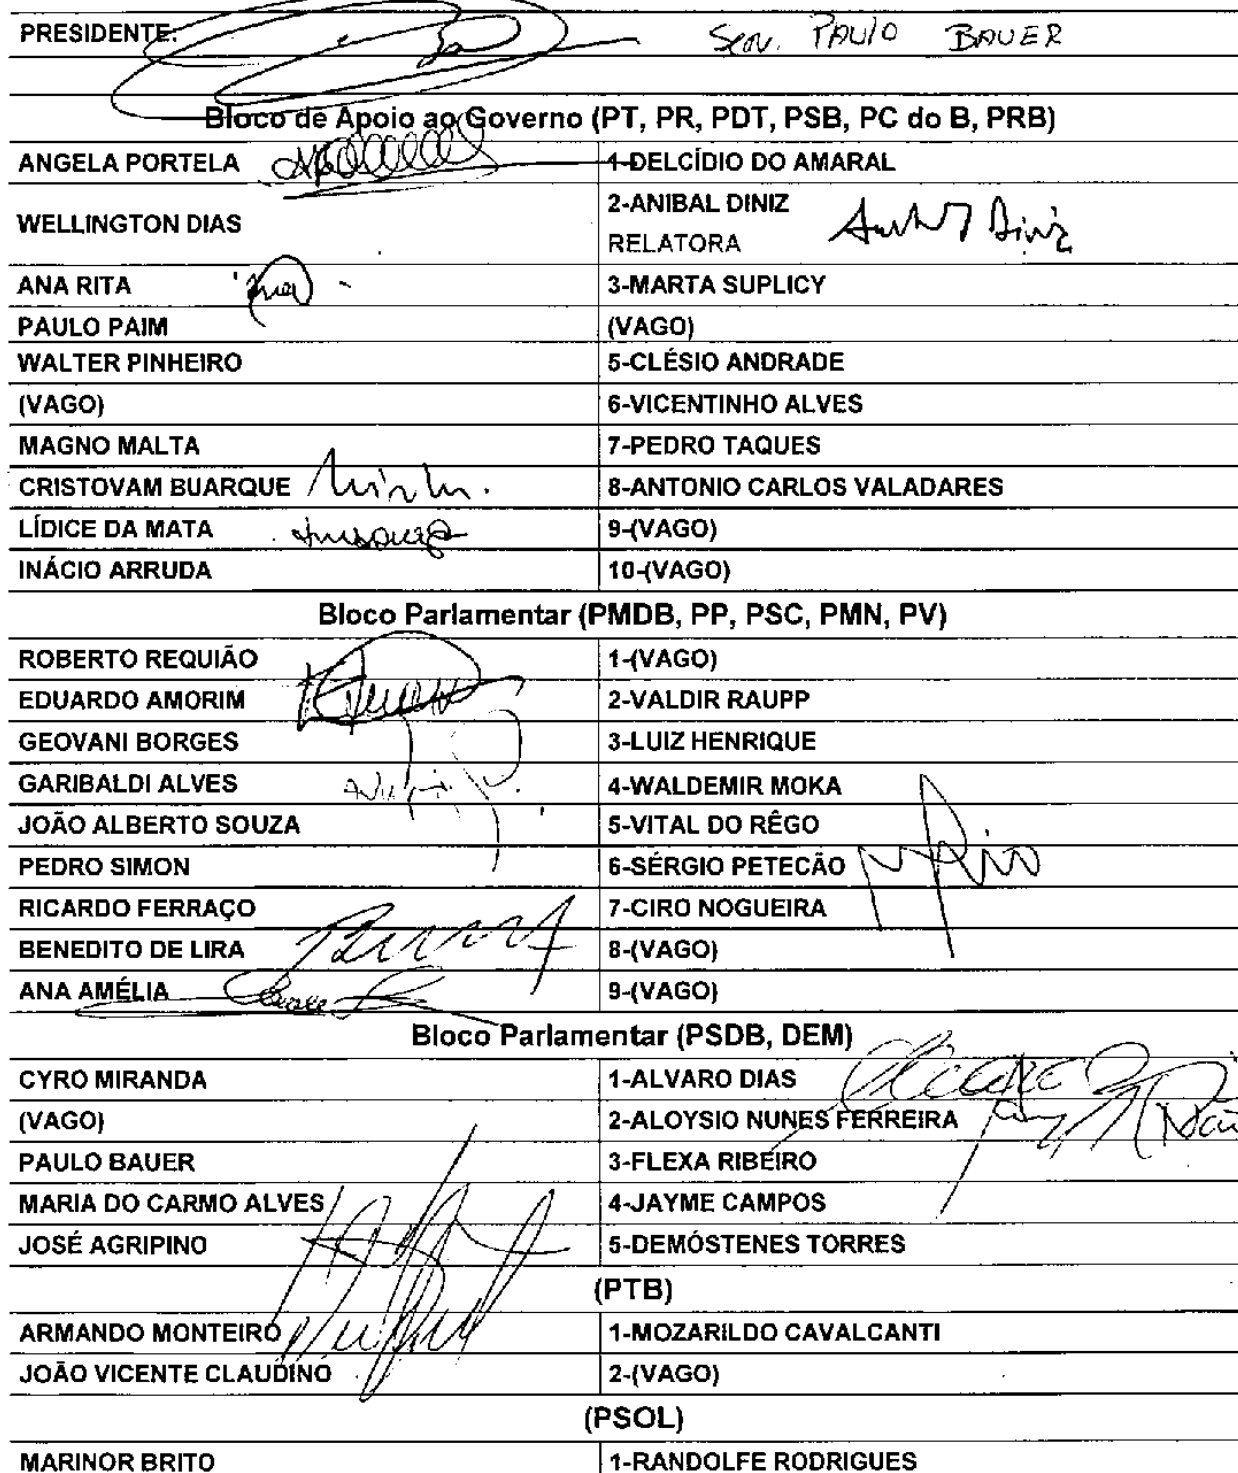 PRESIDENTE: Sen. PAULO BAUER
Bloco de Apoio ao Governo (PT, PR, PDT, PSB, PC do B, PRB)
ANGELA PORTELA 1-DELCÍDIO DO AMARAL
WELLINGTON DIAS 2-ANIBAL DINIZ
RELATORA Anibal Diniz
ANA RITA 3-MARTA SUPLICY
PAULO PAIM (VAGO)
WALTER PINHEIRO 5-CLÉSIO ANDRADE
(VAGO) 6-VICENTINHO ALVES
MAGNO MALTA 7-PEDRO TAQUES
CRISTOVAM BUARQUE 8-ANTONIO CARLOS VALADARES
LÍDICE DA MATA 9-(VAGO)
INÁCIO ARRUDA 10-(VAGO)
Bloco Parlamentar (PMDB, PP, PSC, PMN, PV)
ROBERTO REQUIÃO 1-(VAGO)
EDUARDO AMORIM 2-VALDIR RAUPP
GEOVANI BORGES 3-LUIZ HENRIQUE
GARIBALDI ALVES 4-WALDEMIR MOKA
JOÃO ALBERTO SOUZA 5-VITAL DO RÊGO
PEDRO SIMON 6-SÉRGIO PETECÃO
RICARDO FERRAÇO 7-CIRO NOGUEIRA
BENEDITO DE LIRA 8-(VAGO)
ANA AMÉLIA 9-(VAGO)
Bloco Parlamentar (PSDB, DEM)
CYRO MIRANDA 1-ALVARO DIAS
(VAGO) 2-ALOYSIO NUNES FERREIRA
PAULO BAUER 3-FLEXA RIBEIRO
MARIA DO CARMO ALVES 4-JAYME CAMPOS
JOSÉ AGRIPINO 5-DEMÓSTENES TORRES
(PTB)
ARMANDO MONTEIRO 1-MOZARILDO CAVALCANTI
JOÃO VICENTE CLAUDINO 2-(VAGO)
(PSOL)
MARINOR BRITO 1-RANDOLFE RODRIGUES